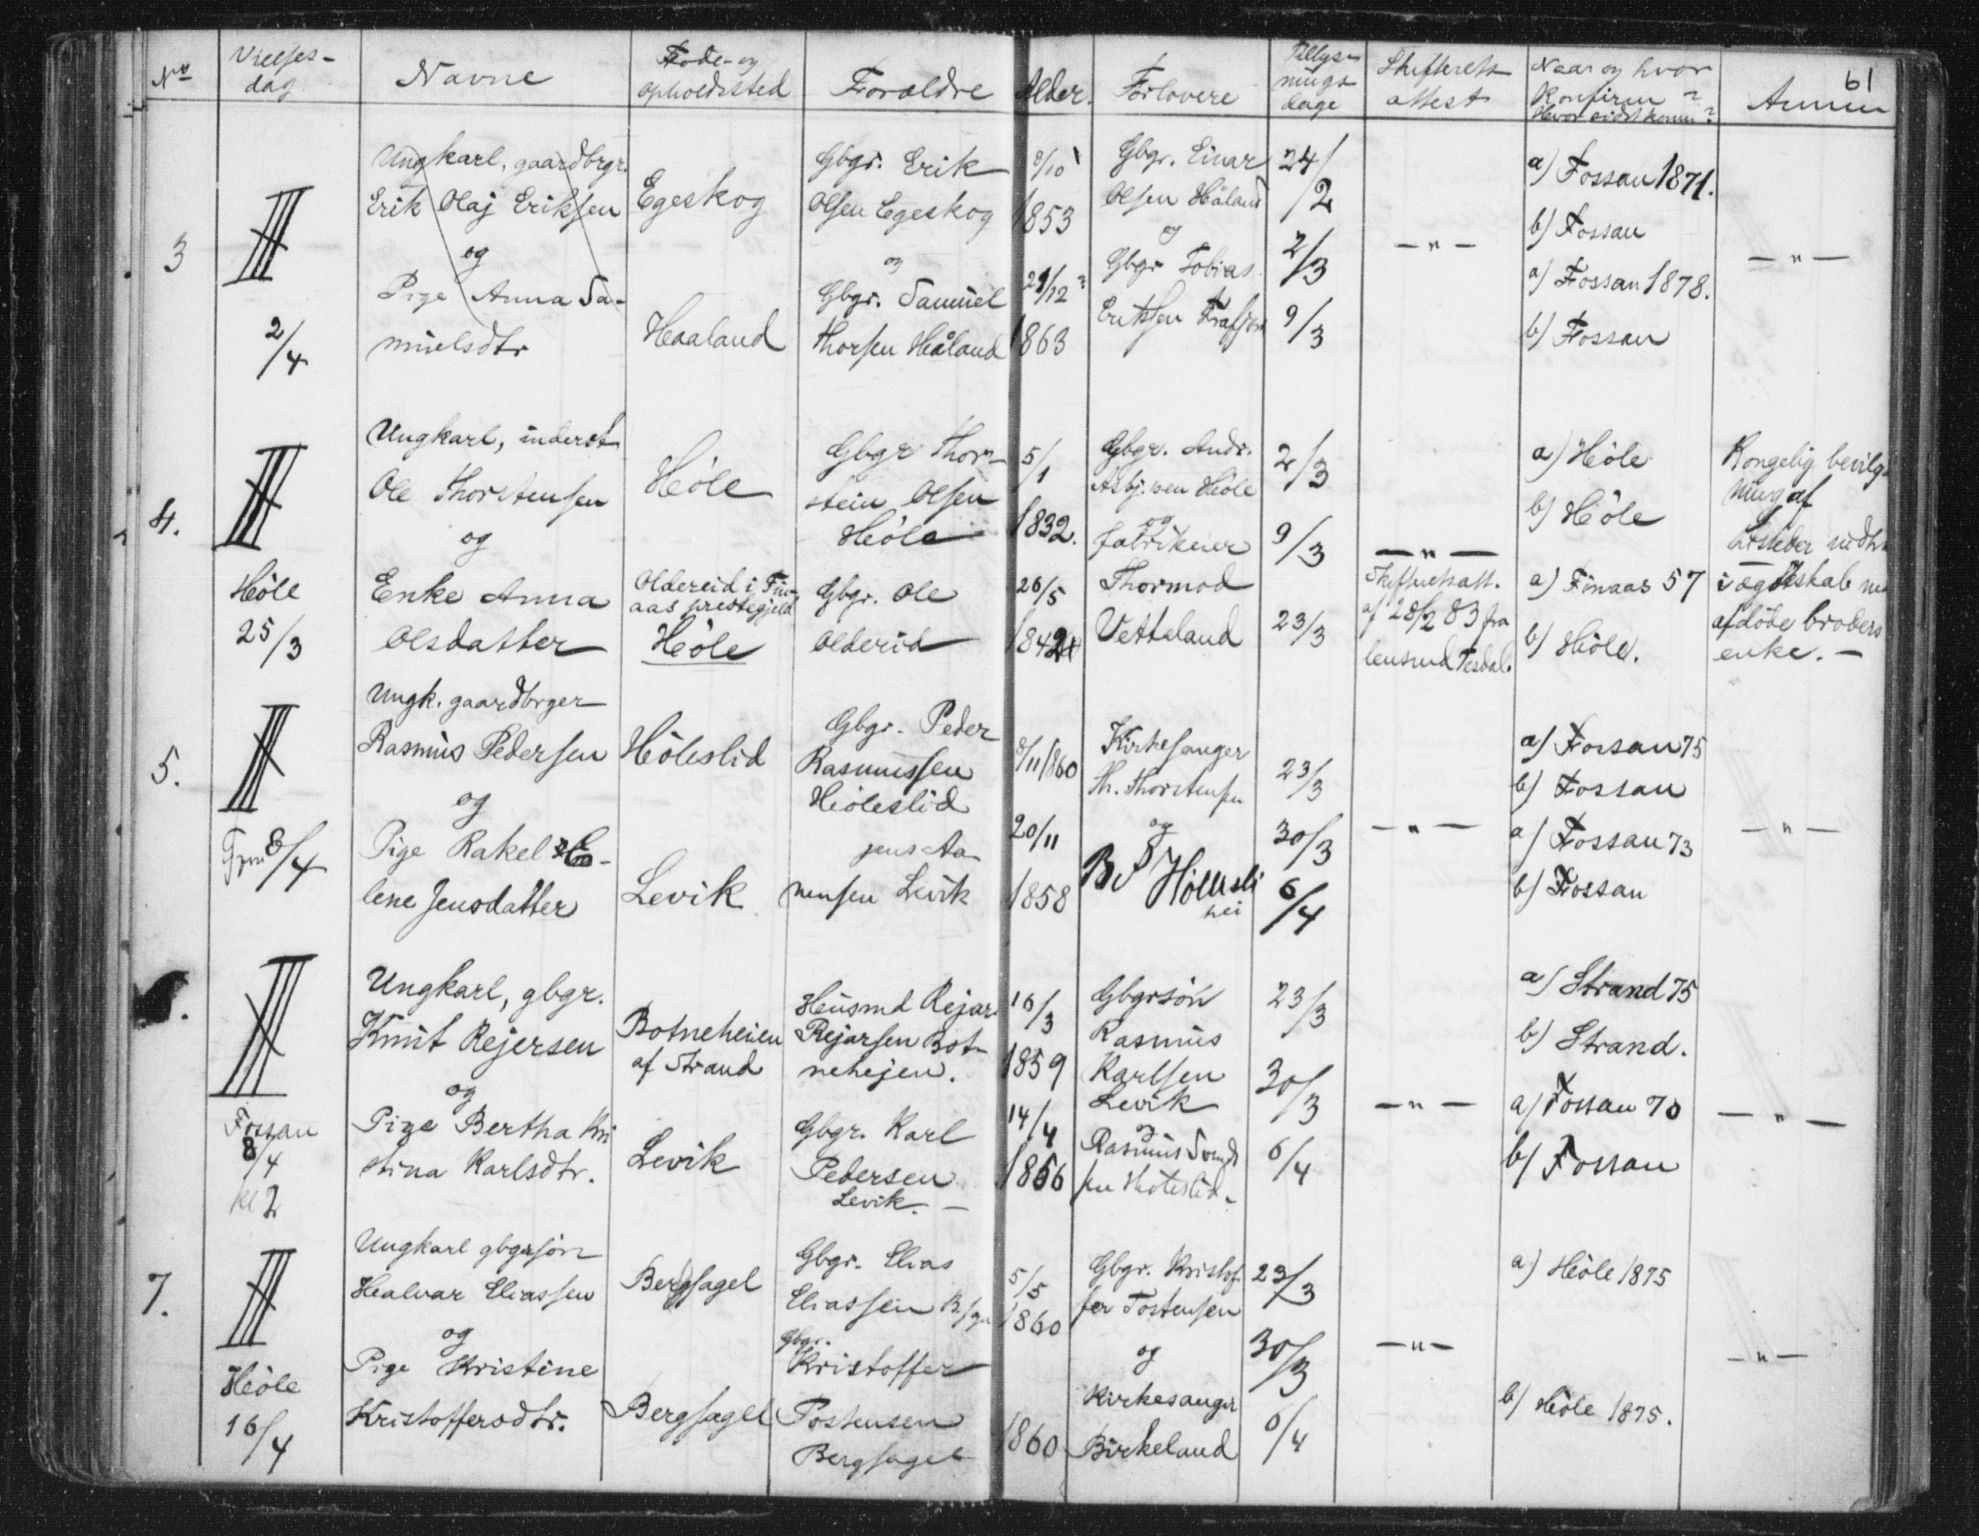 61
No Vielses- Føde- og Tillys- Skifteretts Naar og hvor
dag Navne opholdssted Forældre Alder. Forlovere nings attest Konfirm ? Anm
dage Hvor sidst komm ?
3
2/4
Ungkarl, gaardbrgr.
Erik Olaj Eriksen
og
Pige Anna Sa-
muelsdtr
Egeskog
Haaland
Gbgr. Erik
Olsen Egeskog
og
Gbgr. Samuel
Thorsen Håland
8/10
1853
29/12 ?
1863
Gbgr. Einar
Olsen Håland
og
Gbgr Tobias
Eriksen Frafjord
24/2
2/3
9/3
– " –
a) Fossan 1871.
b) Fossan
a) Fossan 1878.
b) Fossan
– " –
4.
Høle
25/3
Ungkarl, inderst
Ole Thorstensen
og
Enke Anna
Olsdatter
Høle
Oldereid i Fin-
aas prestegjeld
Høle
Gbgr Thor-
stein Olsen
Høle
Gbgr. Ole
Oldereid
5/1
1832.
26/5
Gbgr. Andr.
Asbj.sen Høle
og
fabrikeier
Thormod
Vetteland
2/3
9/3
23/3
– " –
Skifteretsatt.
af 28/2 83 fra
lensmd Tesdal.
a) Høle
b) Høle
a) Finaas 57
b) Høle.
Kongelig bevilg-
ning af
til
i ægteskab
afdøde broders
enke. –
5.
8/4
Ungk. gaardbrger
Rasmus Pedersen
og
Pige Rakel E-
lene Jensdatter
Høleslid
Levik
Gbgr. Peder
Rasmussen
Høleslid
Jens Aa-
nensen Levik
8/11 1860
20/11
1858
Kirkesanger
Th. Thorstensen
og
23/3
30/3
6/4
– " –
a) Fossan 75
b) Fossan
a) Fossan 73
b) Fossan
– " –
Fossan
8/4
kl 2
Ungkarl, gbgr.
Knut Rejersen
og
Pige Bertha Kri
stina Karlsdtr.
Botneheien
af Strand
Levik
Husmd Rejar
Rejarsen Bot-
nehejen.
Gbgr. Karl
Pedersen
Levik. –
16/3
1859
14/4
1856
Gbgrsøn
Rasmus
Karlsen
Levik
og
Rasmus Svend
sen Høleslid.
23/3
30/3
6/4
– " –
a) Strand 75
b) Strand.
a) Fossan 70
b) Fossan
– " –
7.
Høle
16/4
Ungkarl gbgrsøn
Halvar Eliassen
og
Pige Kristine
Kristoffersdtr.
Bergsagel
Bergsagel
Gbgr. Elias
Eliassen
Gbgr.
Kristoffer
Tostensen
Bergsagel
5/5
1860
1860
Gbgr. Kristof-
fer Tostensen
og
Kirkesanger
Birkeland
23/3
30/3
6/4
– " –
a) Høle 1875
b) Høle 1875.
– " –